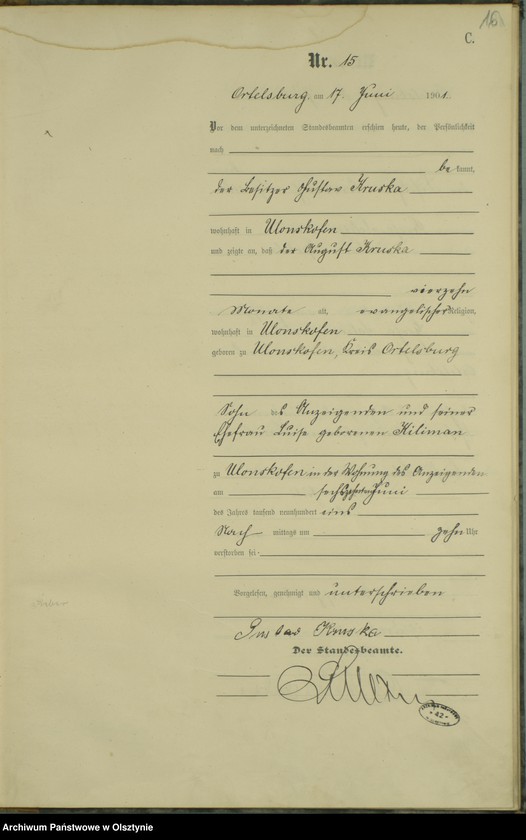 16
C.
Nr. 15
Ortelsburg, am 17. Juni 1901.
Vor dem unterzeichneten Standesbeamten erschien heute, der Persönlichkeit
nach
bekannt,
der Besitzer Gustav Kruska
wohnhaft in Ulonskofen
und zeigte an, daß der August Kruska
vierzehn
Monate alt, evangelischer Religion,
wohnhaft in Ulonskofen
geboren zu Ulonskofen, Kreis Ortelsburg
Sohn des Anzeigenden und seiner
Ehefrau Luise geborenen Kiliman
zu Ulonskofen in der Wohnung des Anzeigenden
am sechszehnten Juni
des Jahrs tausend neunhundert eins
Nachmittags um zehn Uhr
verstorben sei.
Vorgelesen, genehmigt und unterschrieben
Gustav Kruska
Der Standesbeamte.
42
Archiwum Państwowe w Olsztynie